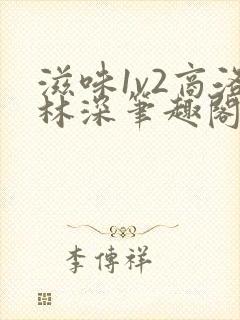 滋味1v2高洛
林深笔趣阁
李傳祥